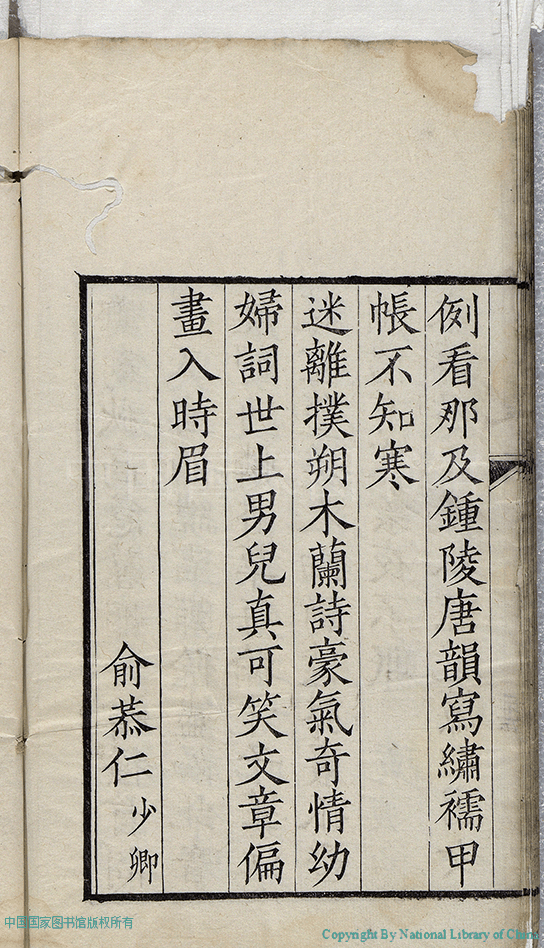 例看那及鍾陵唐韻寫繡襦甲
帳不知寒
迷離撲朔木蘭詩豪氣奇情幼
婦詞世上男兒真可笑文章偏
畫入時眉
俞恭仁少卿
中国国家图书馆版权所有
Copyright By National Library of China